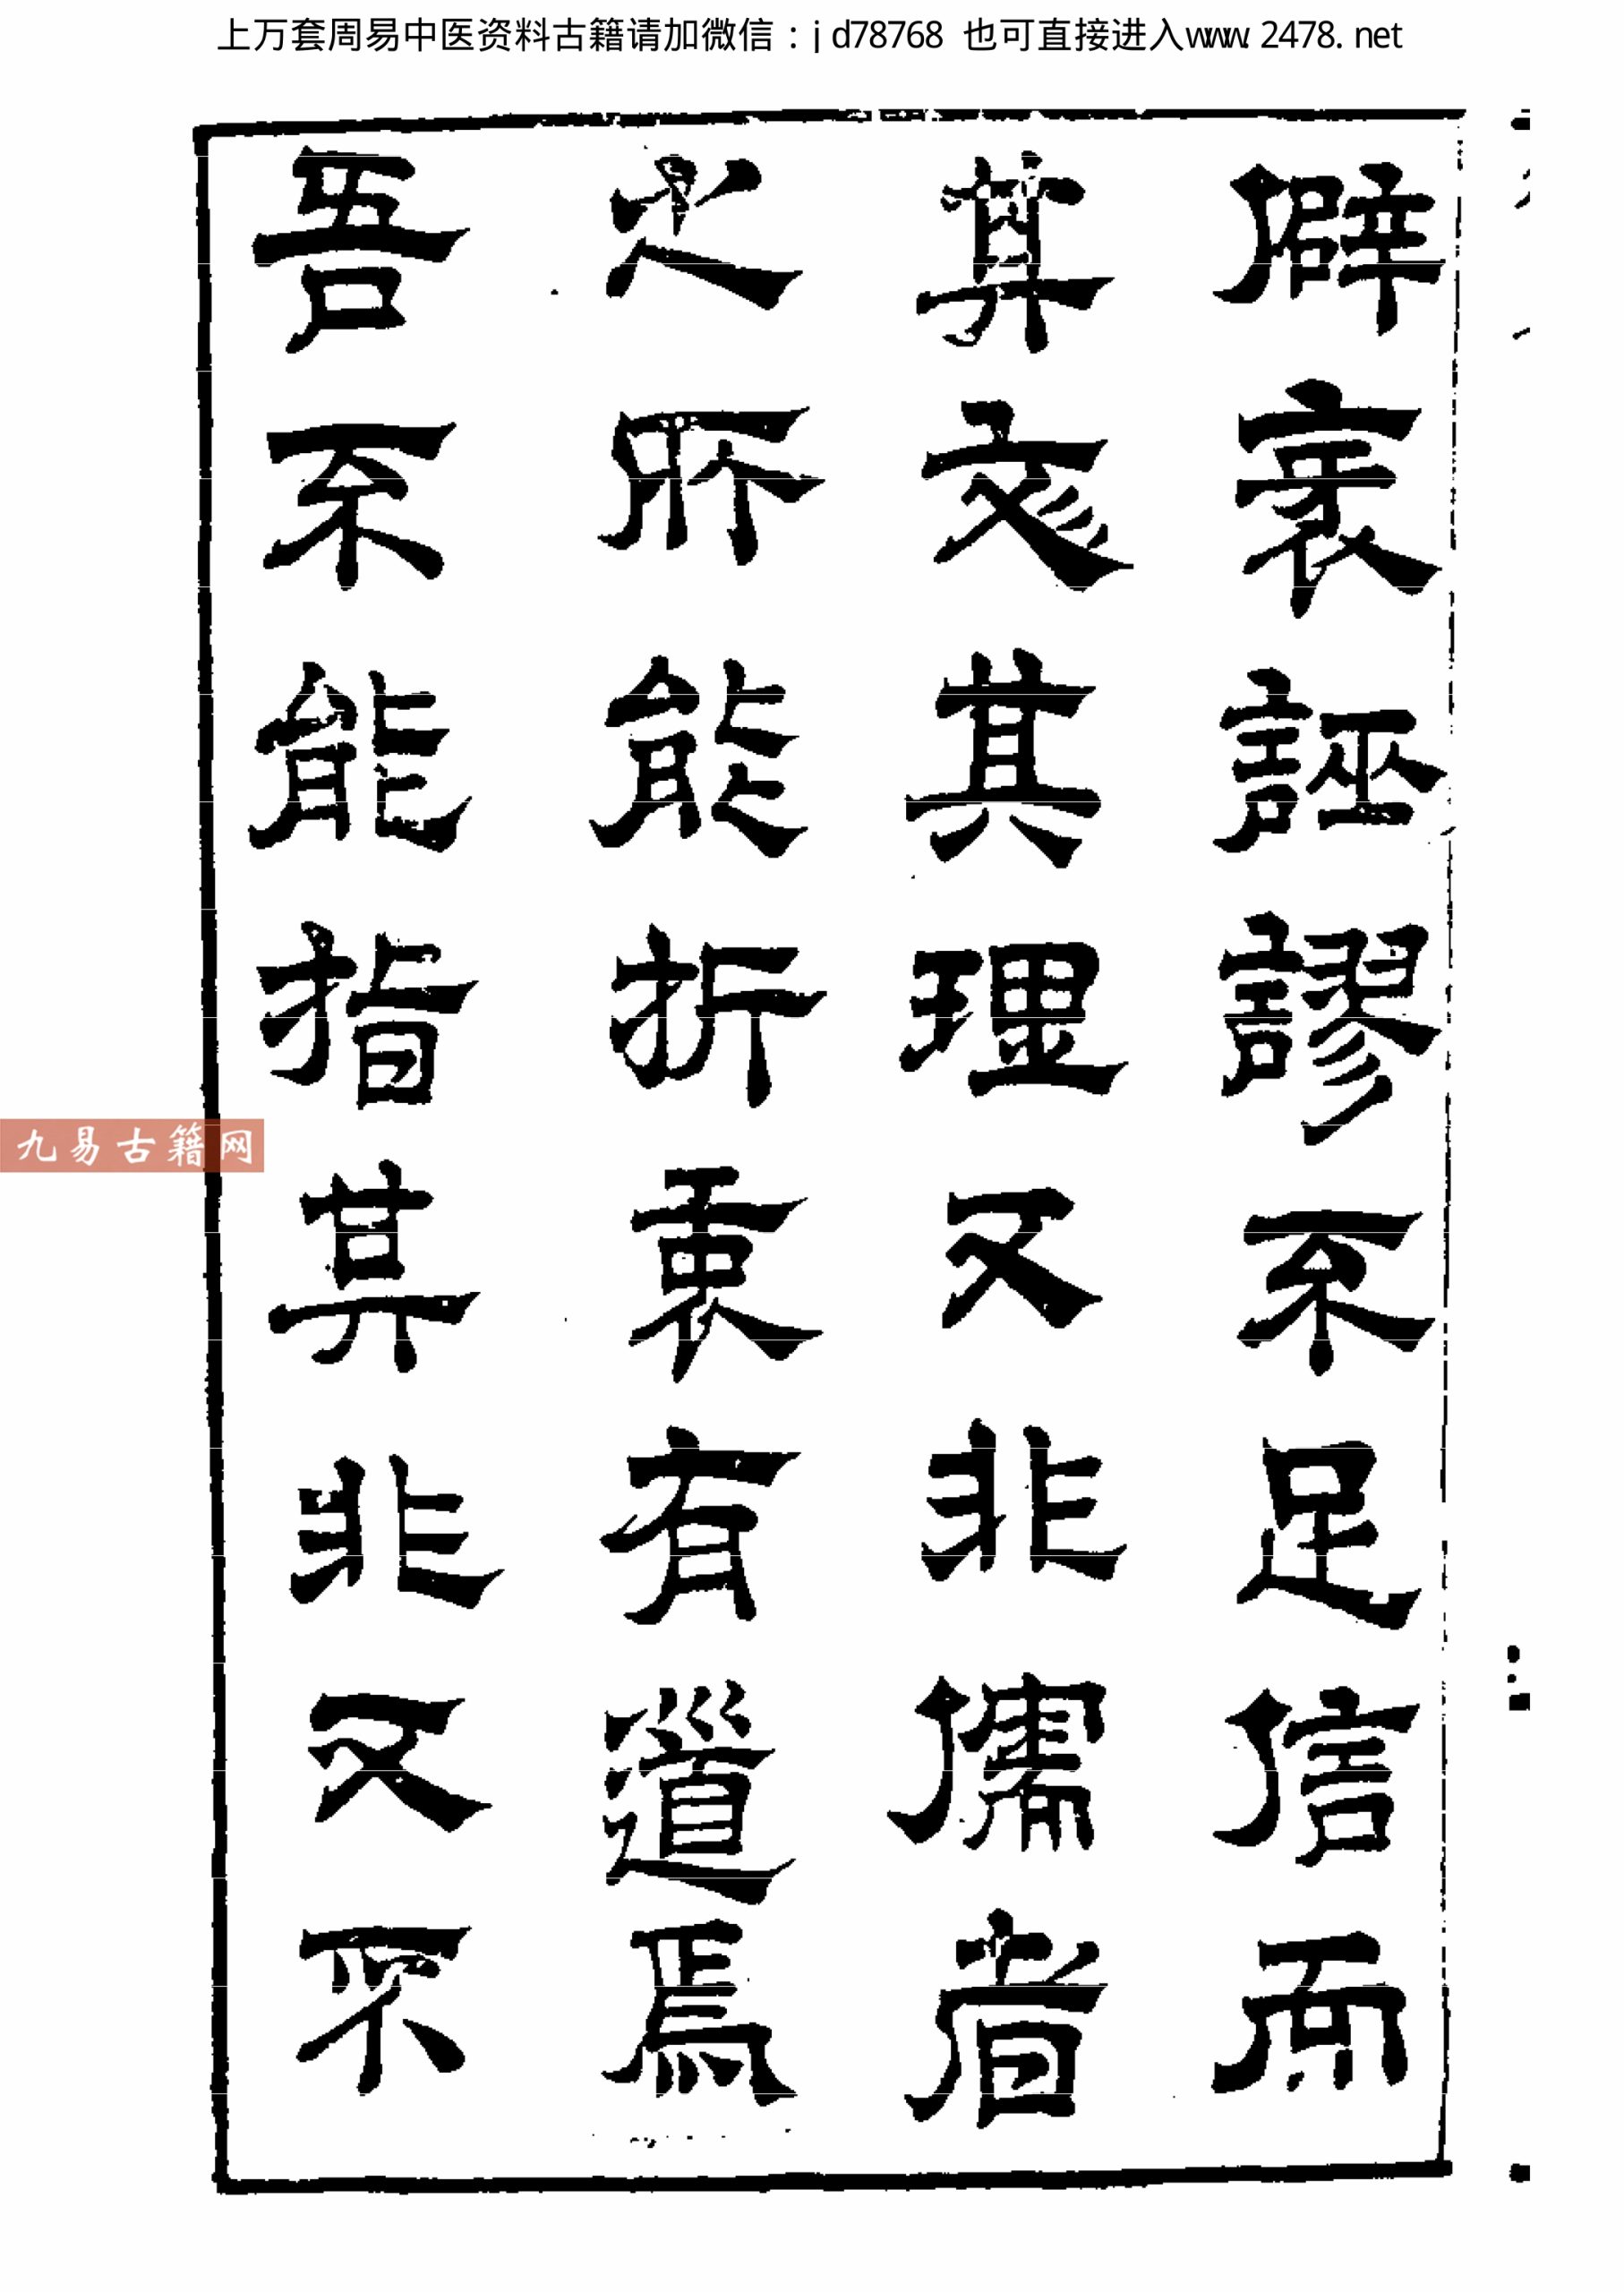 上万套周易中医资料古籍请加微信：jd78768 也可直接进入www.2478.net
僻衺誣謬不足信而
其彣其理又非儒者
之所能折衷有道焉
吾不能指其非又不
九易古籍网